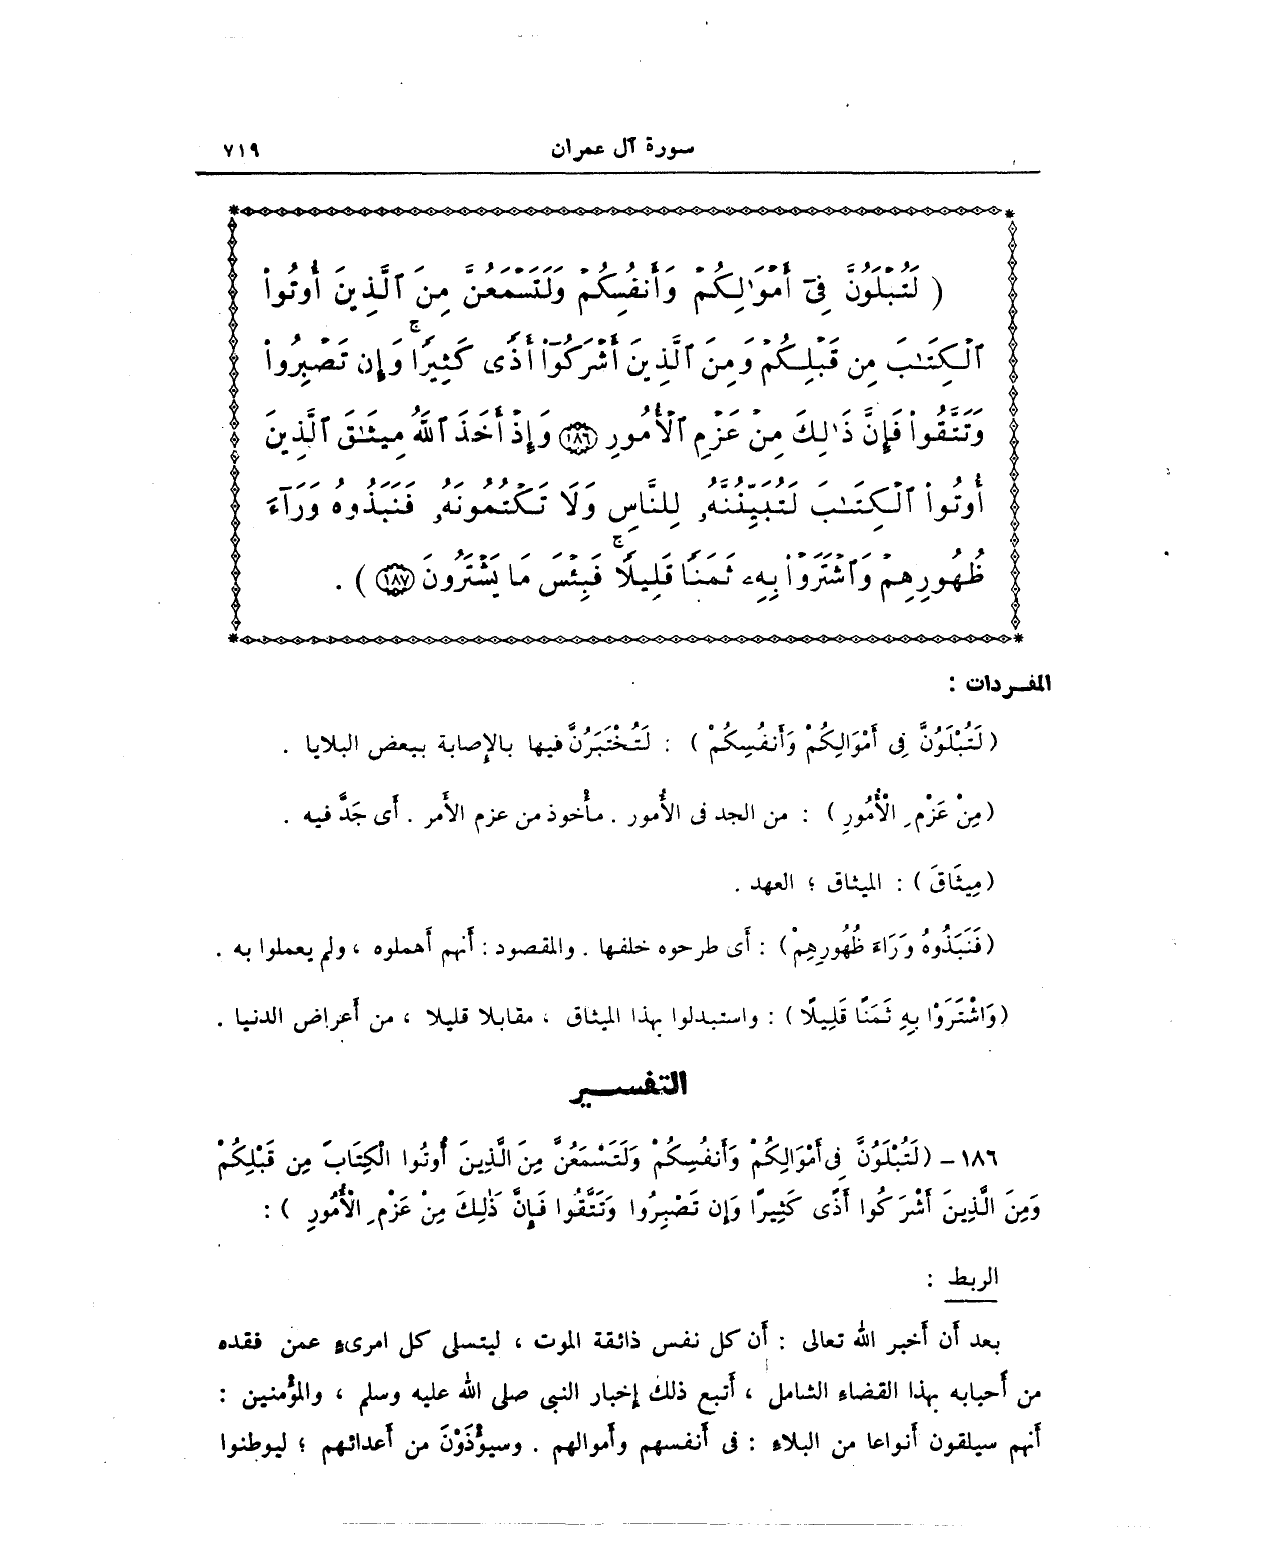 سورة آل عمران ٧١٩
( لَتُبْلَوُنَّ فِىٓ أَمْوَٰلِكُمْ وَأَنفُسِكُمْ وَلَتَسْمَعُنَّ مِنَ ٱلَّذِينَ أُوتُوا۟
ٱلْكِتَـٰبَ مِن قَبْلِكُمْ وَمِنَ ٱلَّذِينَ أَشْرَكُوٓا۟ أَذًى كَثِيرًا ۚ وَإِن تَصْبِرُوا۟
وَتَتَّقُوا۟ فَإِنَّ ذَٰلِكَ مِنْ عَزْمِ ٱلْأُمُورِ ١٨٦ وَإِذْ أَخَذَ ٱللَّهُ مِيثَـٰقَ ٱلَّذِينَ
أُوتُوا۟ ٱلْكِتَـٰبَ لَتُبَيِّنُنَّهُۥ لِلنَّاسِ وَلَا تَكْتُمُونَهُۥ فَنَبَذُوهُ وَرَآءَ
ظُهُورِهِمْ وَٱشْتَرَوْا۟ بِهِۦ ثَمَنًا قَلِيلًا ۚ فَبِئْسَ مَا يَشْتَرُونَ ١٨٧ ) .
المفـردات :
( لَتُبْلَوُنَّ فِى أَمْوَالِكُمْ وَأَنفُسِكُمْ ) : لَتُخْتَبَرُنَّ فيها بالإصابة ببعض البلايا .
( مِنْ عَزْمِ الْأُمُورِ ) : من الجد فى الأُمور . مأْخوذ من عزم الأَمر . أَى جَدَّ فيه .
( مِيثَاقَ ) : الميثاق ؛ العهد .
( فَنَبَذُوهُ وَرَاءَ ظُهُورِهِمْ ) : أَى طرحوه خلفها . والمقصود : أَنهم أَهملوه ، ولم يعملوا به .
( وَاشْتَرَوْا بِهِ ثَمَنًا قَلِيلًا ) : واستبدلوا بهذا الميثاق ، مقابلا قليلا ، من أَعراض الدنيا .
التفسـير
١٨٦ - ( لَتُبْلَوُنَّ فِى أَمْوَالِكُمْ وَأَنفُسِكُمْ وَلَتَسْمَعُنَّ مِنَ الَّذِينَ أُوتُوا الْكِتَابَ مِن قَبْلِكُمْ
وَمِنَ الَّذِينَ أَشْرَكُوا أَذًى كَثِيرًا وَإِن تَصْبِرُوا وَتَتَّقُوا فَإِنَّ ذَٰلِكَ مِنْ عَزْمِ الْأُمُورِ ) :
الربط :
بعد أَن أَخبر الله تعالى : أَن كل نفس ذائقة الموت ، ليتسلى كل امرىءٍ عمن فقده
من أَحبابه بهذا القضاء الشامل ، أَتبع ذلك إخبار النبى صلى الله عليه وسلم ، والمؤْمنين :
أَنهم سيلقون أَنواعا من البلاءِ : فى أَنفسهم وأَموالهم . وسيُؤْذَوْنَ من أَعدائهم ؛ ليوطنوا